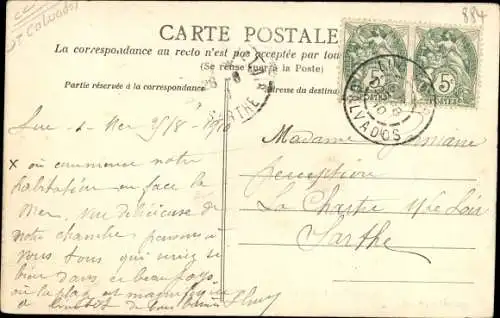 Calvados
884
CARTE POSTALE
La correspondance au recto n'est pas acceptée par tou
(Se renseigner à la Poste)
Partie réservée à la correspondance
Adresse du destina
5c
5c
POSTES
CALVADOS
SARTHE
Luc s Mer 25/8 1910
x où commence notre
habitation en face la
Mer. Vue délicieuse de
notre chambre
vous tous qui
bien dans ce beau pays
où la plage est magnifique
Madame
perception
La Chartre s/ le Loir
Sarthe